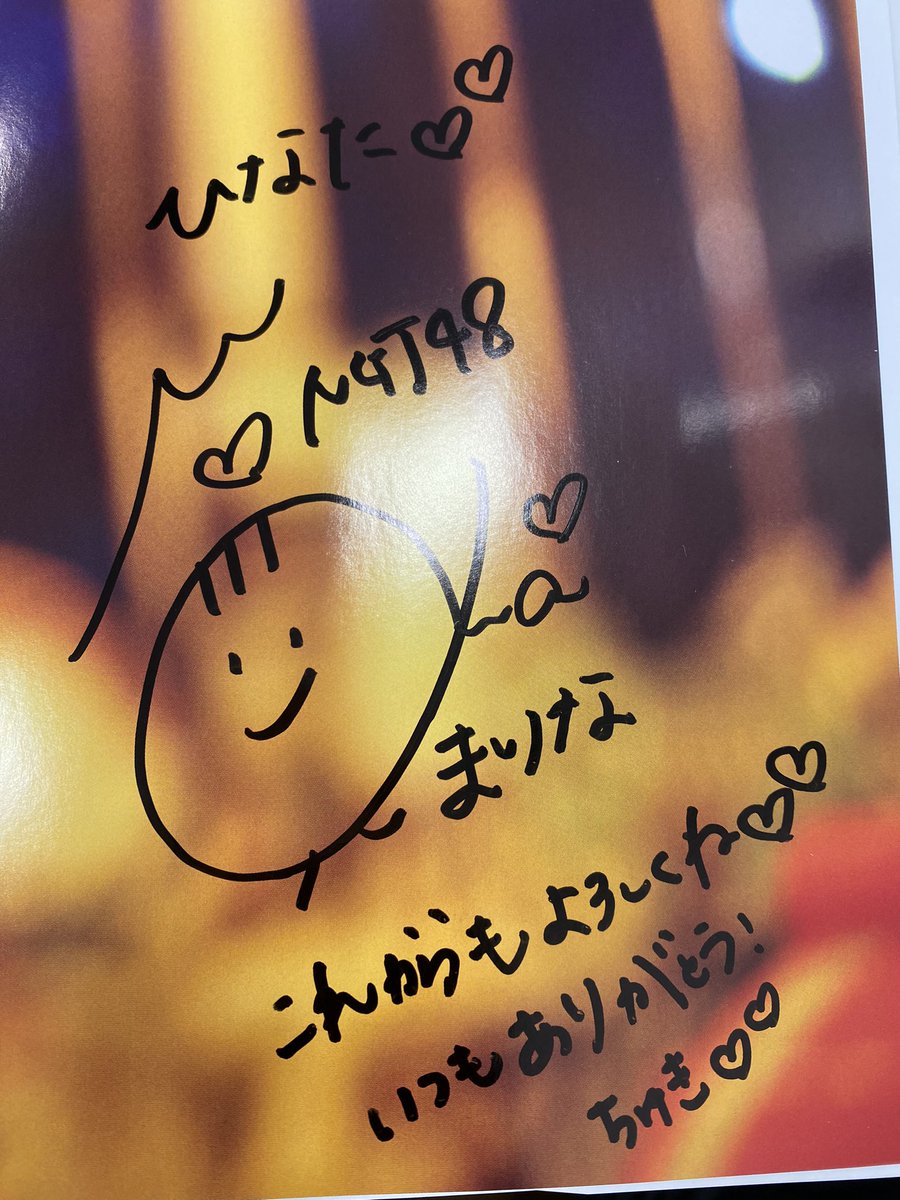 ひなた♡♡
♡ NGT48
♡
まりな
これからもよろしくね♡♡
いつもありがとう!
ちゅき♡♡